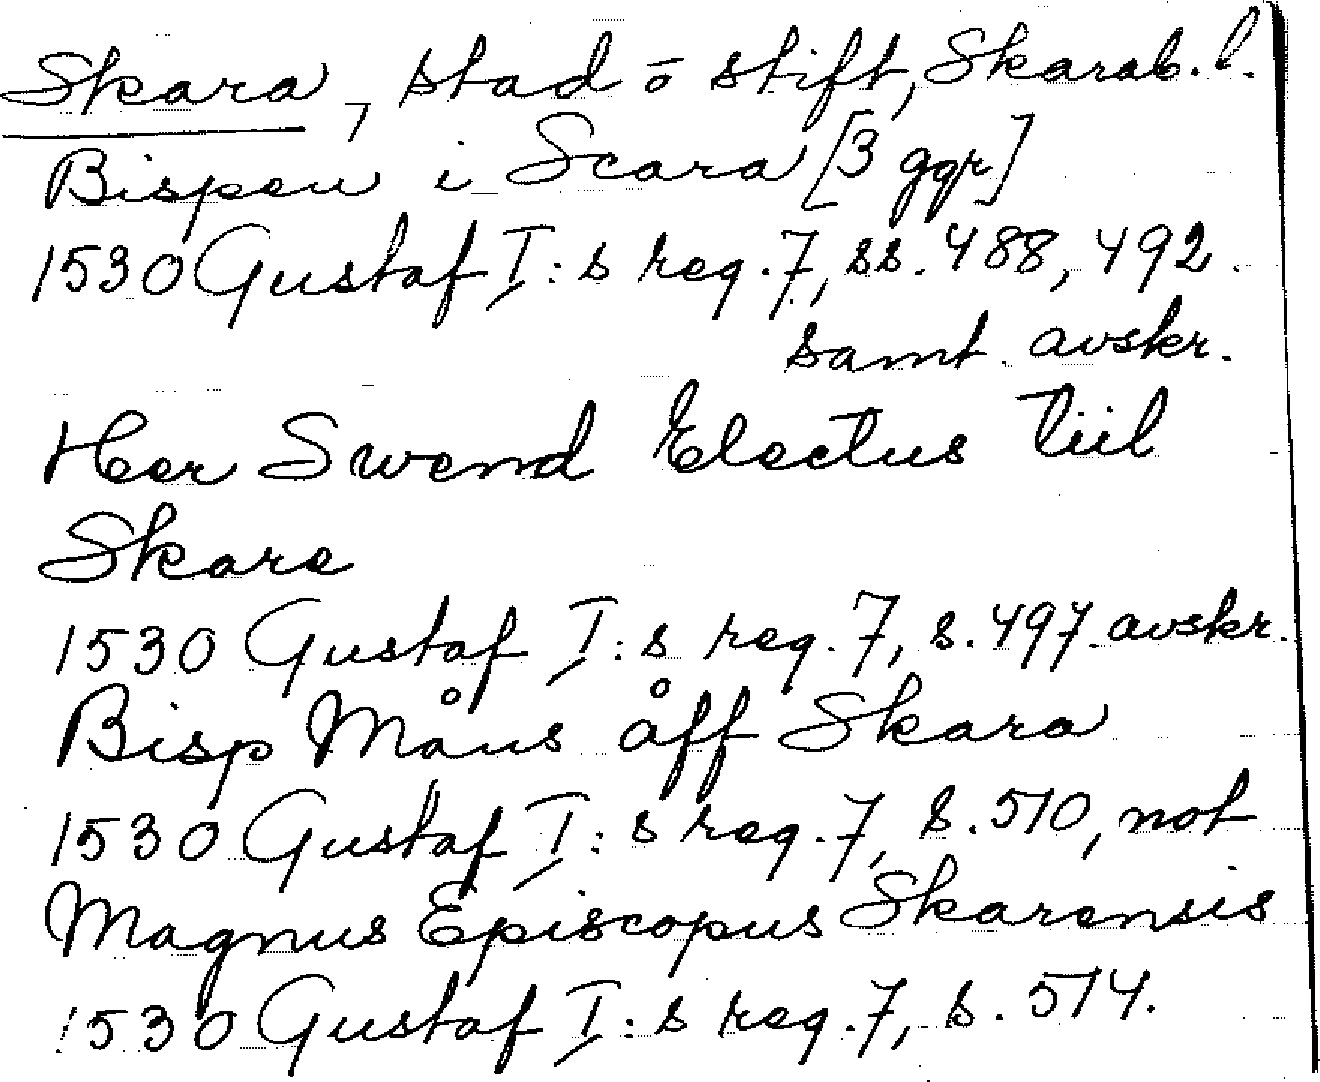 Skara, stad o stift, Skarab. l.
Bispen i Scara [3 ggr]
1530 Gustaf I:s reg. 7, ss. 488, 492
samt avskr.
Her Swend Electus tiil
Skare
1530 Gustaf I:s reg. 7, s. 497 avskr.
Bisp Måns åff Skara
1530 Gustaf I:s reg. 7, s. 510, not
Magnus Episcopus Skarensis
1530 Gustaf I:s reg. 7, s. 514.